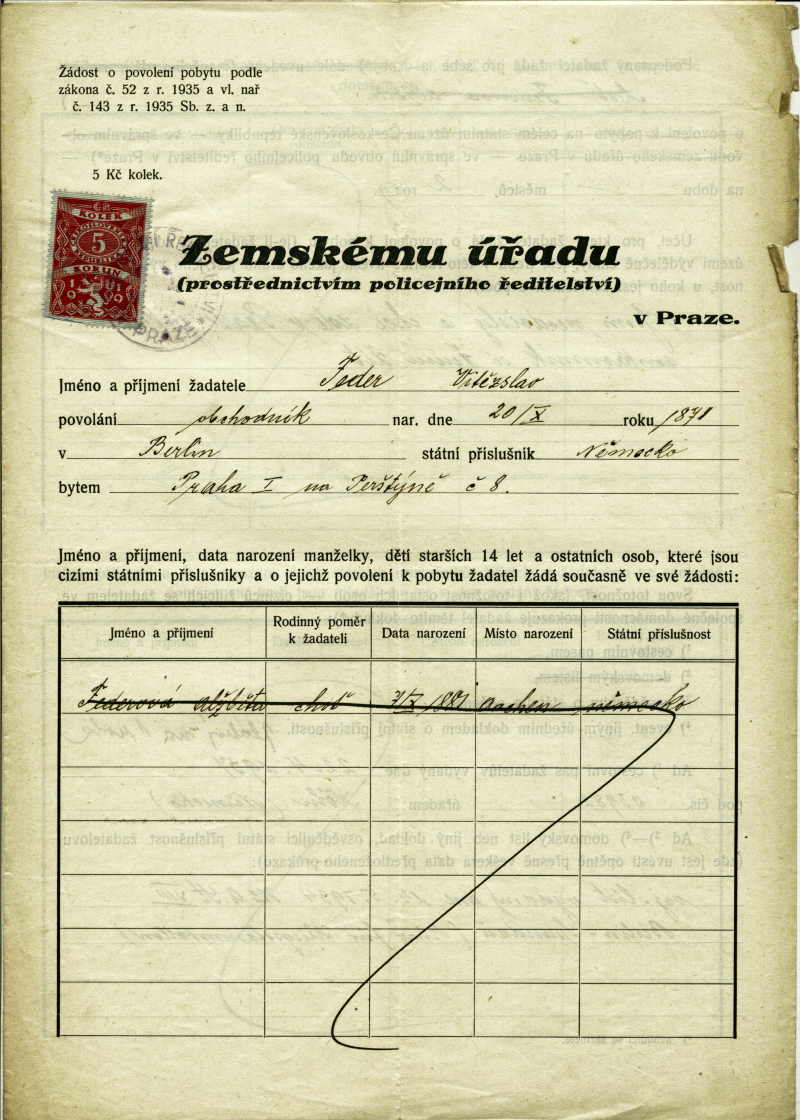 Žádost o povolení pobytu podle
zákona č. 52 z r. 1935 a vl. nař
č. 143 z r. 1935 Sb. z. a n.
5 Kč kolek.
KOLEK
5
KORUN
PRAZE
Zemskému úřadu
(prostřednictvím policejního ředitelství)
v Praze.
Jméno a příjmení žadatele Feder Vítězslav
povolání obchodník nar. dne 20/X roku 1871
v Berlin státní příslušník Německo
bytem Praha I na Perštýně č 8.
Jméno a příjmení, data narození manželky, dětí starších 14 let a ostatních osob, které jsou
cizími státními příslušníky a o jejichž povolení k pobytu žadatel žádá současně ve své žádosti:
Jméno a příjmení Rodinný poměr k žadateli Data narození Místo narození Státní příslušnost
Federová Alžběta choť /X 1881 Aachen německo